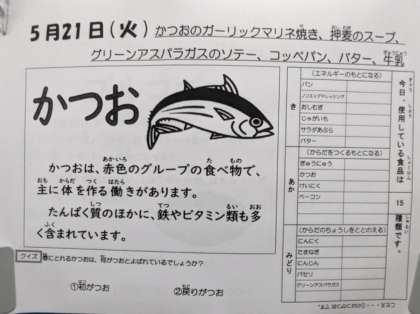 5月21日(火) かつおのガーリックマリネ焼き、押麦のスープ、
グリーンアスパラガスのソテー、コッペパン、バター、牛乳
かつお
かつおは、赤色のグループの食べ物で、
主に体を作る働きがあります。
たんぱく質のほかに、鉄やビタミン類も多
く含まれています。
クイズ
とれるかつおは、何がつおとよばれているでしょうか?
①初がつお ②戻りがつお
き
(エネルギーのもとになる)
パン
ノンエッグドレッシング
おしむぎ
じゃがいも
サラダあぶら
バター
あか
(からだをつくるもとになる)
ぎゅうにゅう
かつお
けいにく
ベーコン
みどり
(からだのちょうしをととのえる)
にんにく
たまねぎ
にんじん
パセリ
グリーンアスパラガス
今日、使用している食品は
15
種類です。